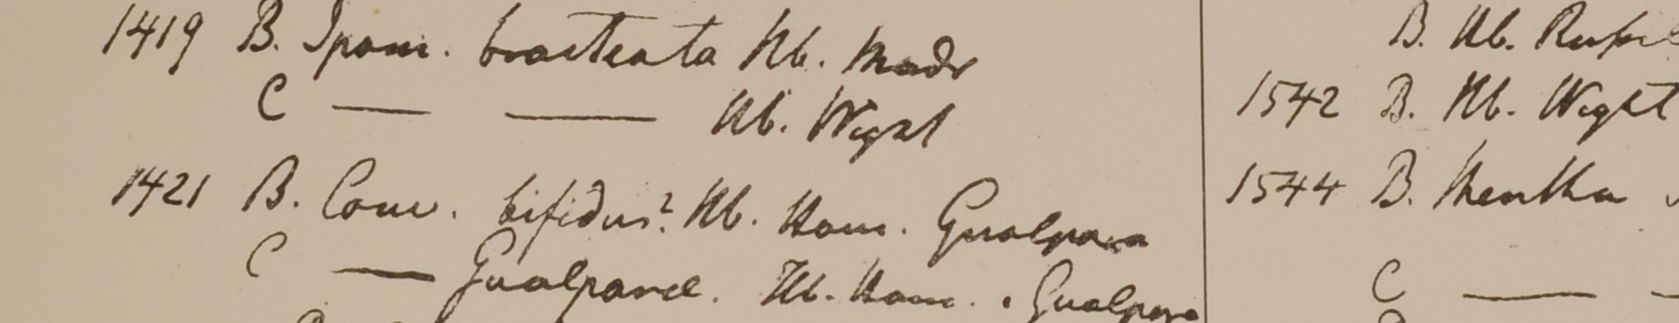 1419 B. Ipom. bracteata Hb. Madr
C — — Hb. Wight
1421 B. Conv. bifidus? Hb. Ham. Gualpara
C — Gualparel. Hb. Ham. Gualpara
B. Hb.
1542 B. Hb. Wight
1544 B. Mentha
C —